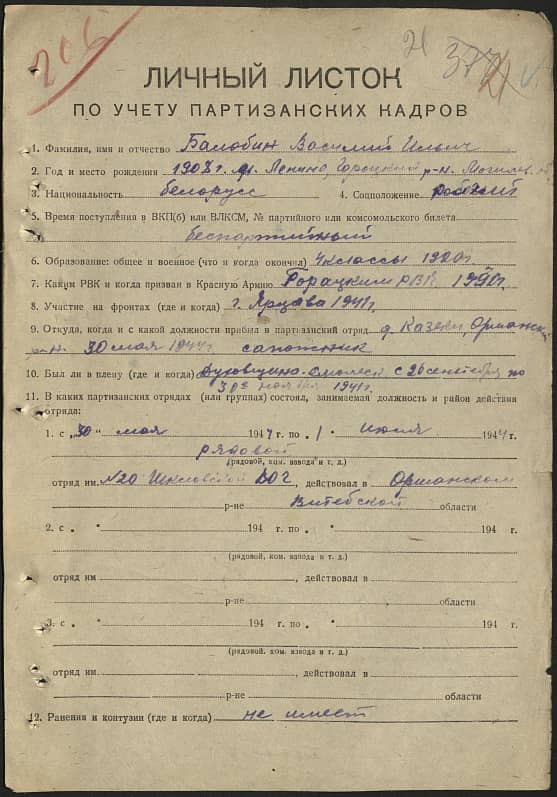 206
ЛИЧНЫЙ ЛИСТОК
ПО УЧЕТУ ПАРТИЗАНСКИХ КАДРОВ
1. Фамилия, имя и отчество Балобин Василий Ильич
2. Год и место рождения 1908 г. д. Ленино, Горецкий р-н. Могилев.
3. Национальность белорусс 4. Соцположение рабочий
5. Время поступления в ВКП(б) или ВЛКСМ, № партийного или комсомольского билета
беспартийный
6. Образование: общее и военное (что и когда окончил) 4 классы 1920 г.
7. Каким РВК и когда призван в Красную Армию Горацким РВК
8. Участие на фронтах (где и когда) г. Ярцава 1941 г.
9. Откуда, когда и с какой должности прибыл в партизанский отряд д. Оршанск.
р-н. 30 мая 1944 г. сапожник
10. Был ли в плену (где и когда) Духовщино-Смоленск с 26 сентября по
30е ноября 1941 г.
11. В каких партизанских отрядах (или группах) состоял, занимаемая должность и район действия
отряда:
1. с „30" мая 1944 г. по 1 " июля 1944 г.
рядовой
(рядовой, ком. взвода и т. д.)
отряд им. №20 Шкловской ВОГ, действовал в Оршанском
р-не Витебской области
2. с " " 194 г. по " " 194 г.
(рядовой, ком. взвода и т. д.)
отряд им , действовал в
р-не области
3. с " " 194 г. по " " 194 г.
(рядовой, ком. взвода и т. д.)
отряд им , действовал в
р-не области
12. Ранения и контузии (где и когда) не имеет